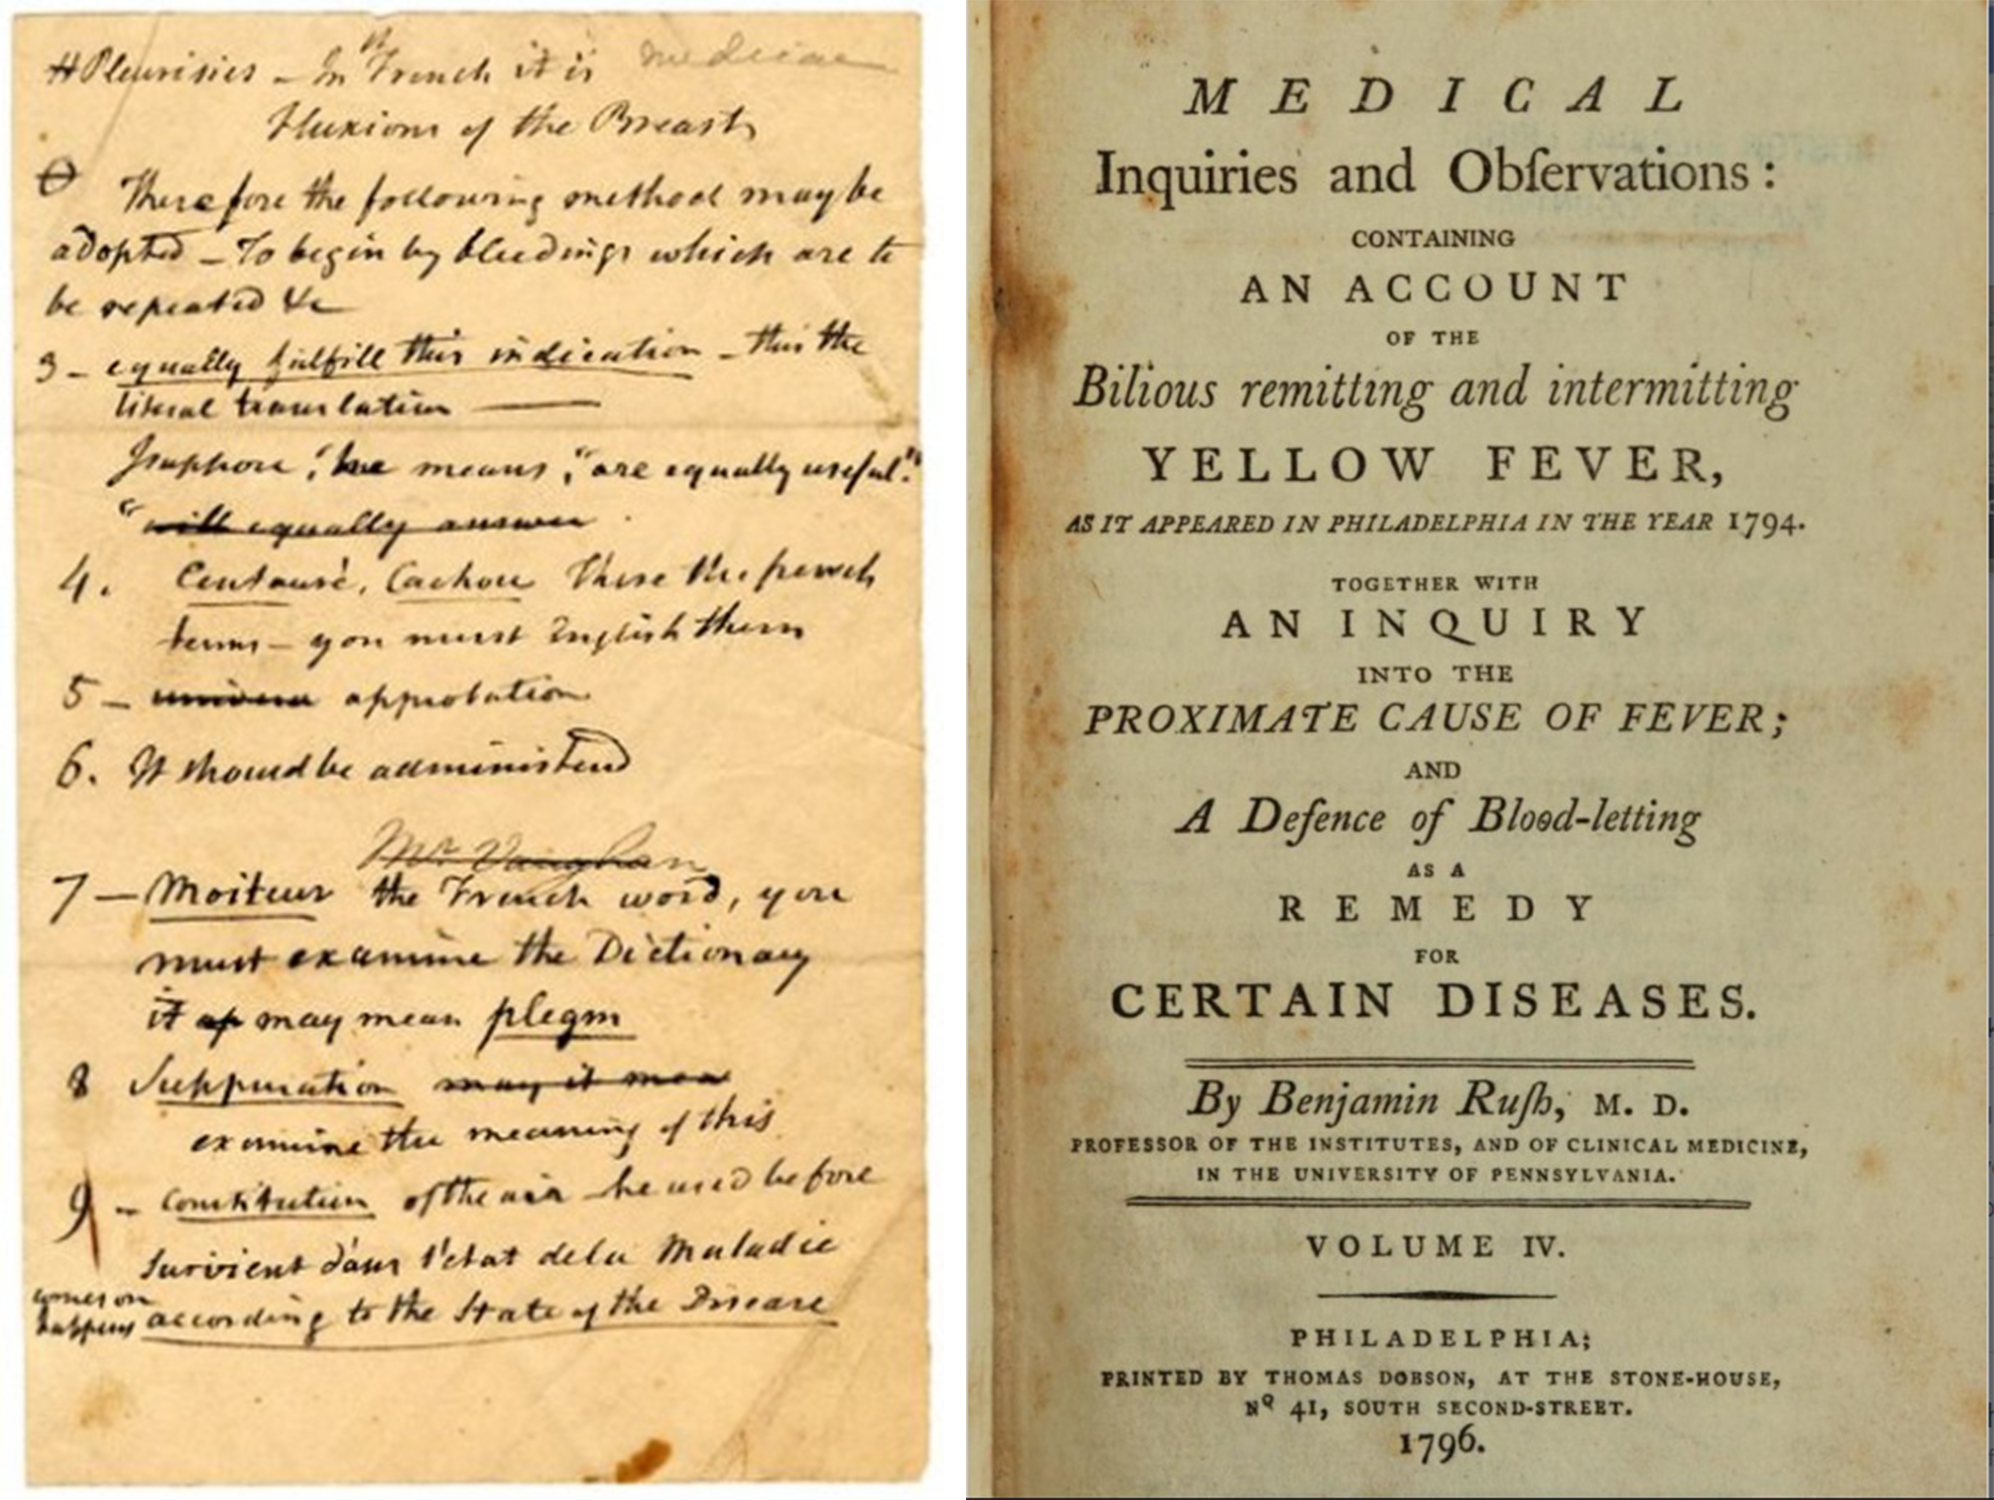 # Pleurisies - In French it is
Fluxions of the Breast
Therefore the following method may be
adopted - To begin by bleedings which are to
be repeated &c
3 - equally fulfill this indication - this the
literal translation
I suppose, he means, "are equally useful."
"will equally answer
4. Centauré, Cachou These the french
terms - you must English them
5 - approbation
6. It should be administered
Mr Vaughan
7 - Moiteur the French word, you
must examine the Dictionary
it may mean plegm
8 Suppuration may it mea
examine the meaning of this
9 - Constitution of the air - he used before
Survient dans l'etat de la Maladie
comes on
happens according to the State of the Disease
MEDICAL
Inquiries and Obſervations:
CONTAINING
AN ACCOUNT
OF THE
Bilious remitting and intermitting
YELLOW FEVER,
AS IT APPEARED IN PHILADELPHIA IN THE YEAR 1794.
TOGETHER WITH
AN INQUIRY
INTO THE
PROXIMATE CAUSE OF FEVER;
AND
A Defence of Blood-letting
AS A
REMEDY
FOR
CERTAIN DISEASES.
By Benjamin Ruſh, M. D.
PROFESSOR OF THE INSTITUTES, AND OF CLINICAL MEDICINE,
IN THE UNIVERSITY OF PENNSYLVANIA.
VOLUME IV.
PHILADELPHIA;
PRINTED BY THOMAS DOBSON, AT THE STONE-HOUSE,
Nº 41, SOUTH SECOND-STREET.
1796.